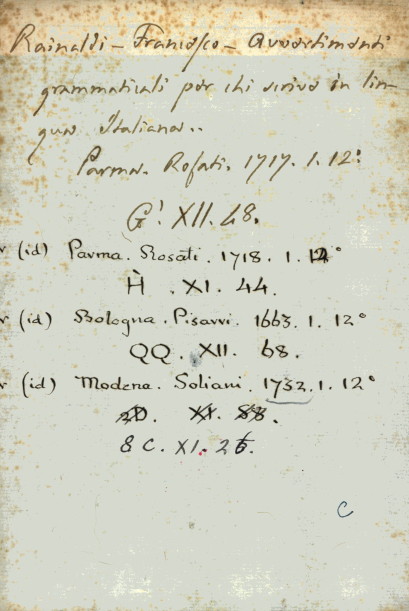 Rainaldi - Francesco - Avvertimenti
grammaticali per chi scrive in lin-
gua Italiana..
Parma. Rosati. 1717. 1. 12°
G' XII. 48.
(id) Parma. Rosati. 1718. 1. 12°
H̀. XI. 44.
(id) Bologna. Pisarri. 1663. 1. 12°
QQ. XII. 68.
(id) Modena. Soliani. 1732. 1. 12°
8 C. XI. 26.
C